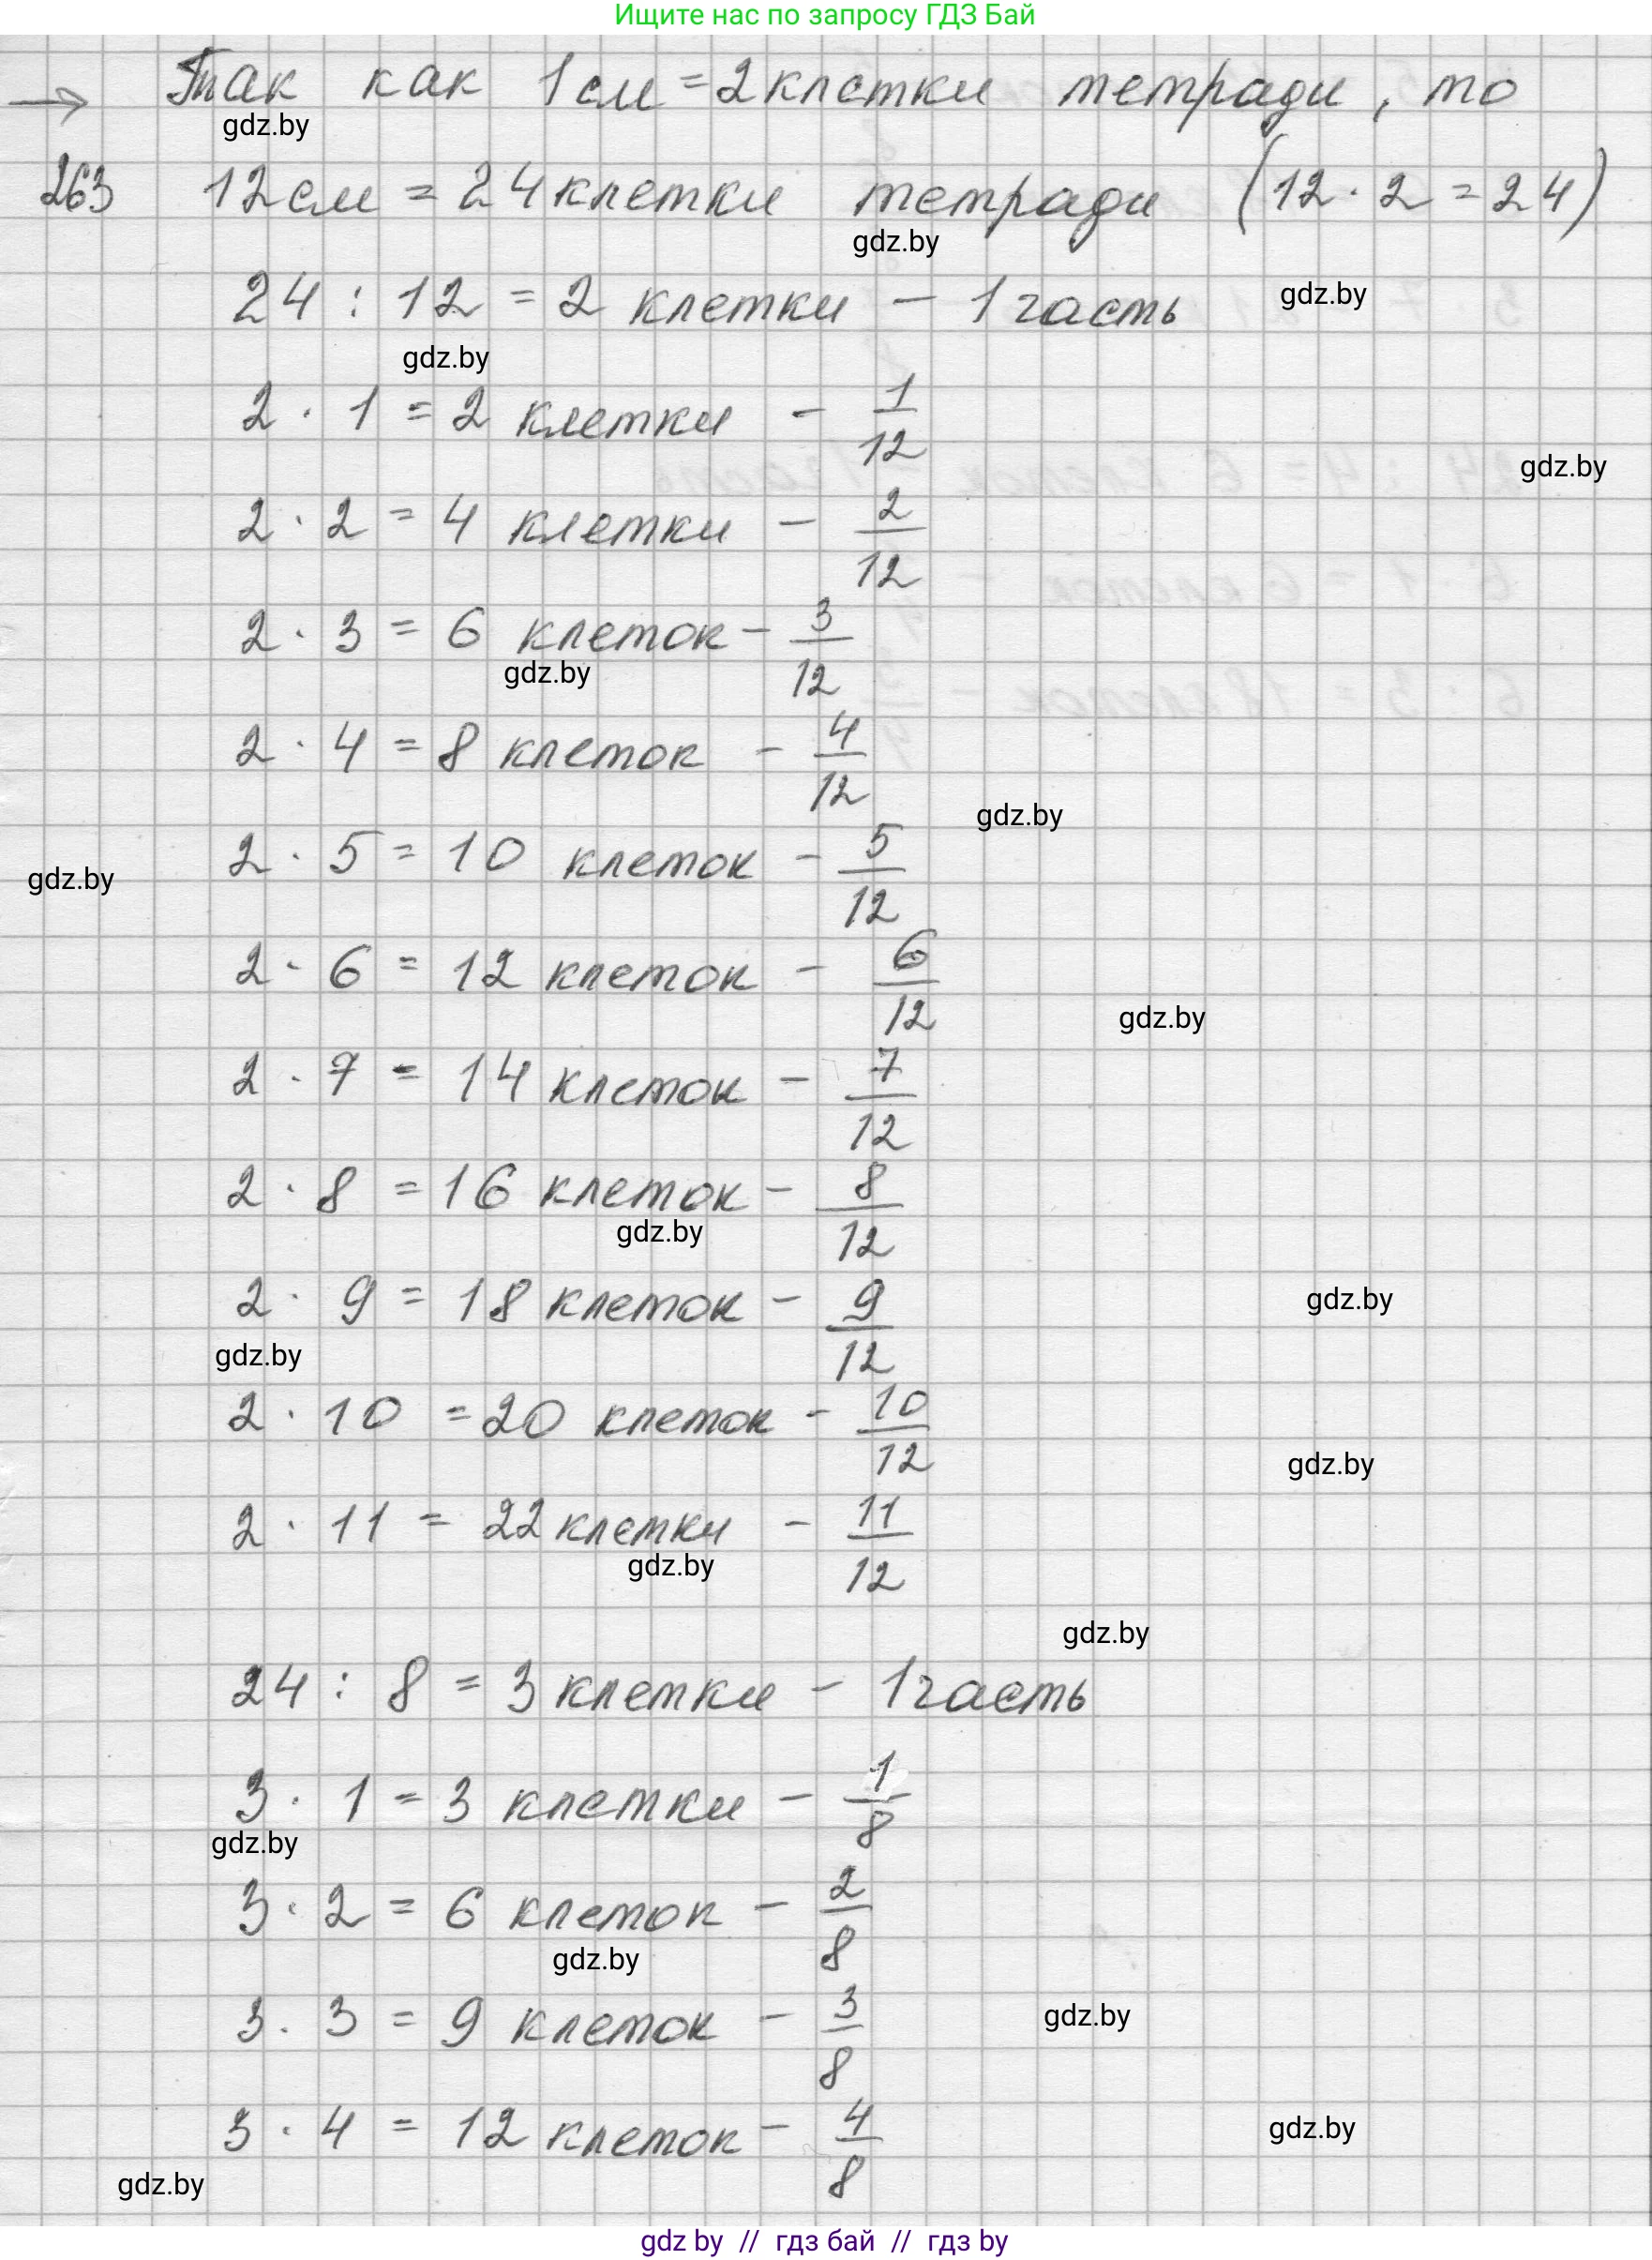 Ищите нас по запросу ГДЗ Бай
→ Так как 1 см = 2 клетки тетради, то
gdz.by
263 12 см = 24 клетки тетради (12 · 2 = 24)
gdz.by
24 : 12 = 2 клетки – 1 часть gdz.by
gdz.by
2 · 1 = 2 клетки – 1/12
gdz.by
2 · 2 = 4 клетки – 2/12
2 · 3 = 6 клеток – 3/12
gdz.by
2 · 4 = 8 клеток – 4/12
gdz.by
2 · 5 = 10 клеток – 5/12
gdz.by
2 · 6 = 12 клеток – 6/12
gdz.by
2 · 7 = 14 клеток – 7/12
2 · 8 = 16 клеток – 8/12
gdz.by
2 · 9 = 18 клеток – 9/12 gdz.by
gdz.by
2 · 10 = 20 клеток – 10/12
gdz.by
2 · 11 = 22 клетки – 11/12
gdz.by
gdz.by
24 : 8 = 3 клетки – 1 часть
3 · 1 = 3 клетки – 1/8
gdz.by
3 · 2 = 6 клеток – 2/8
gdz.by
3 · 3 = 9 клеток – 3/8 gdz.by
3 · 4 = 12 клеток – 4/8 gdz.by
gdz.by
gdz by // гдз бай // гдз by